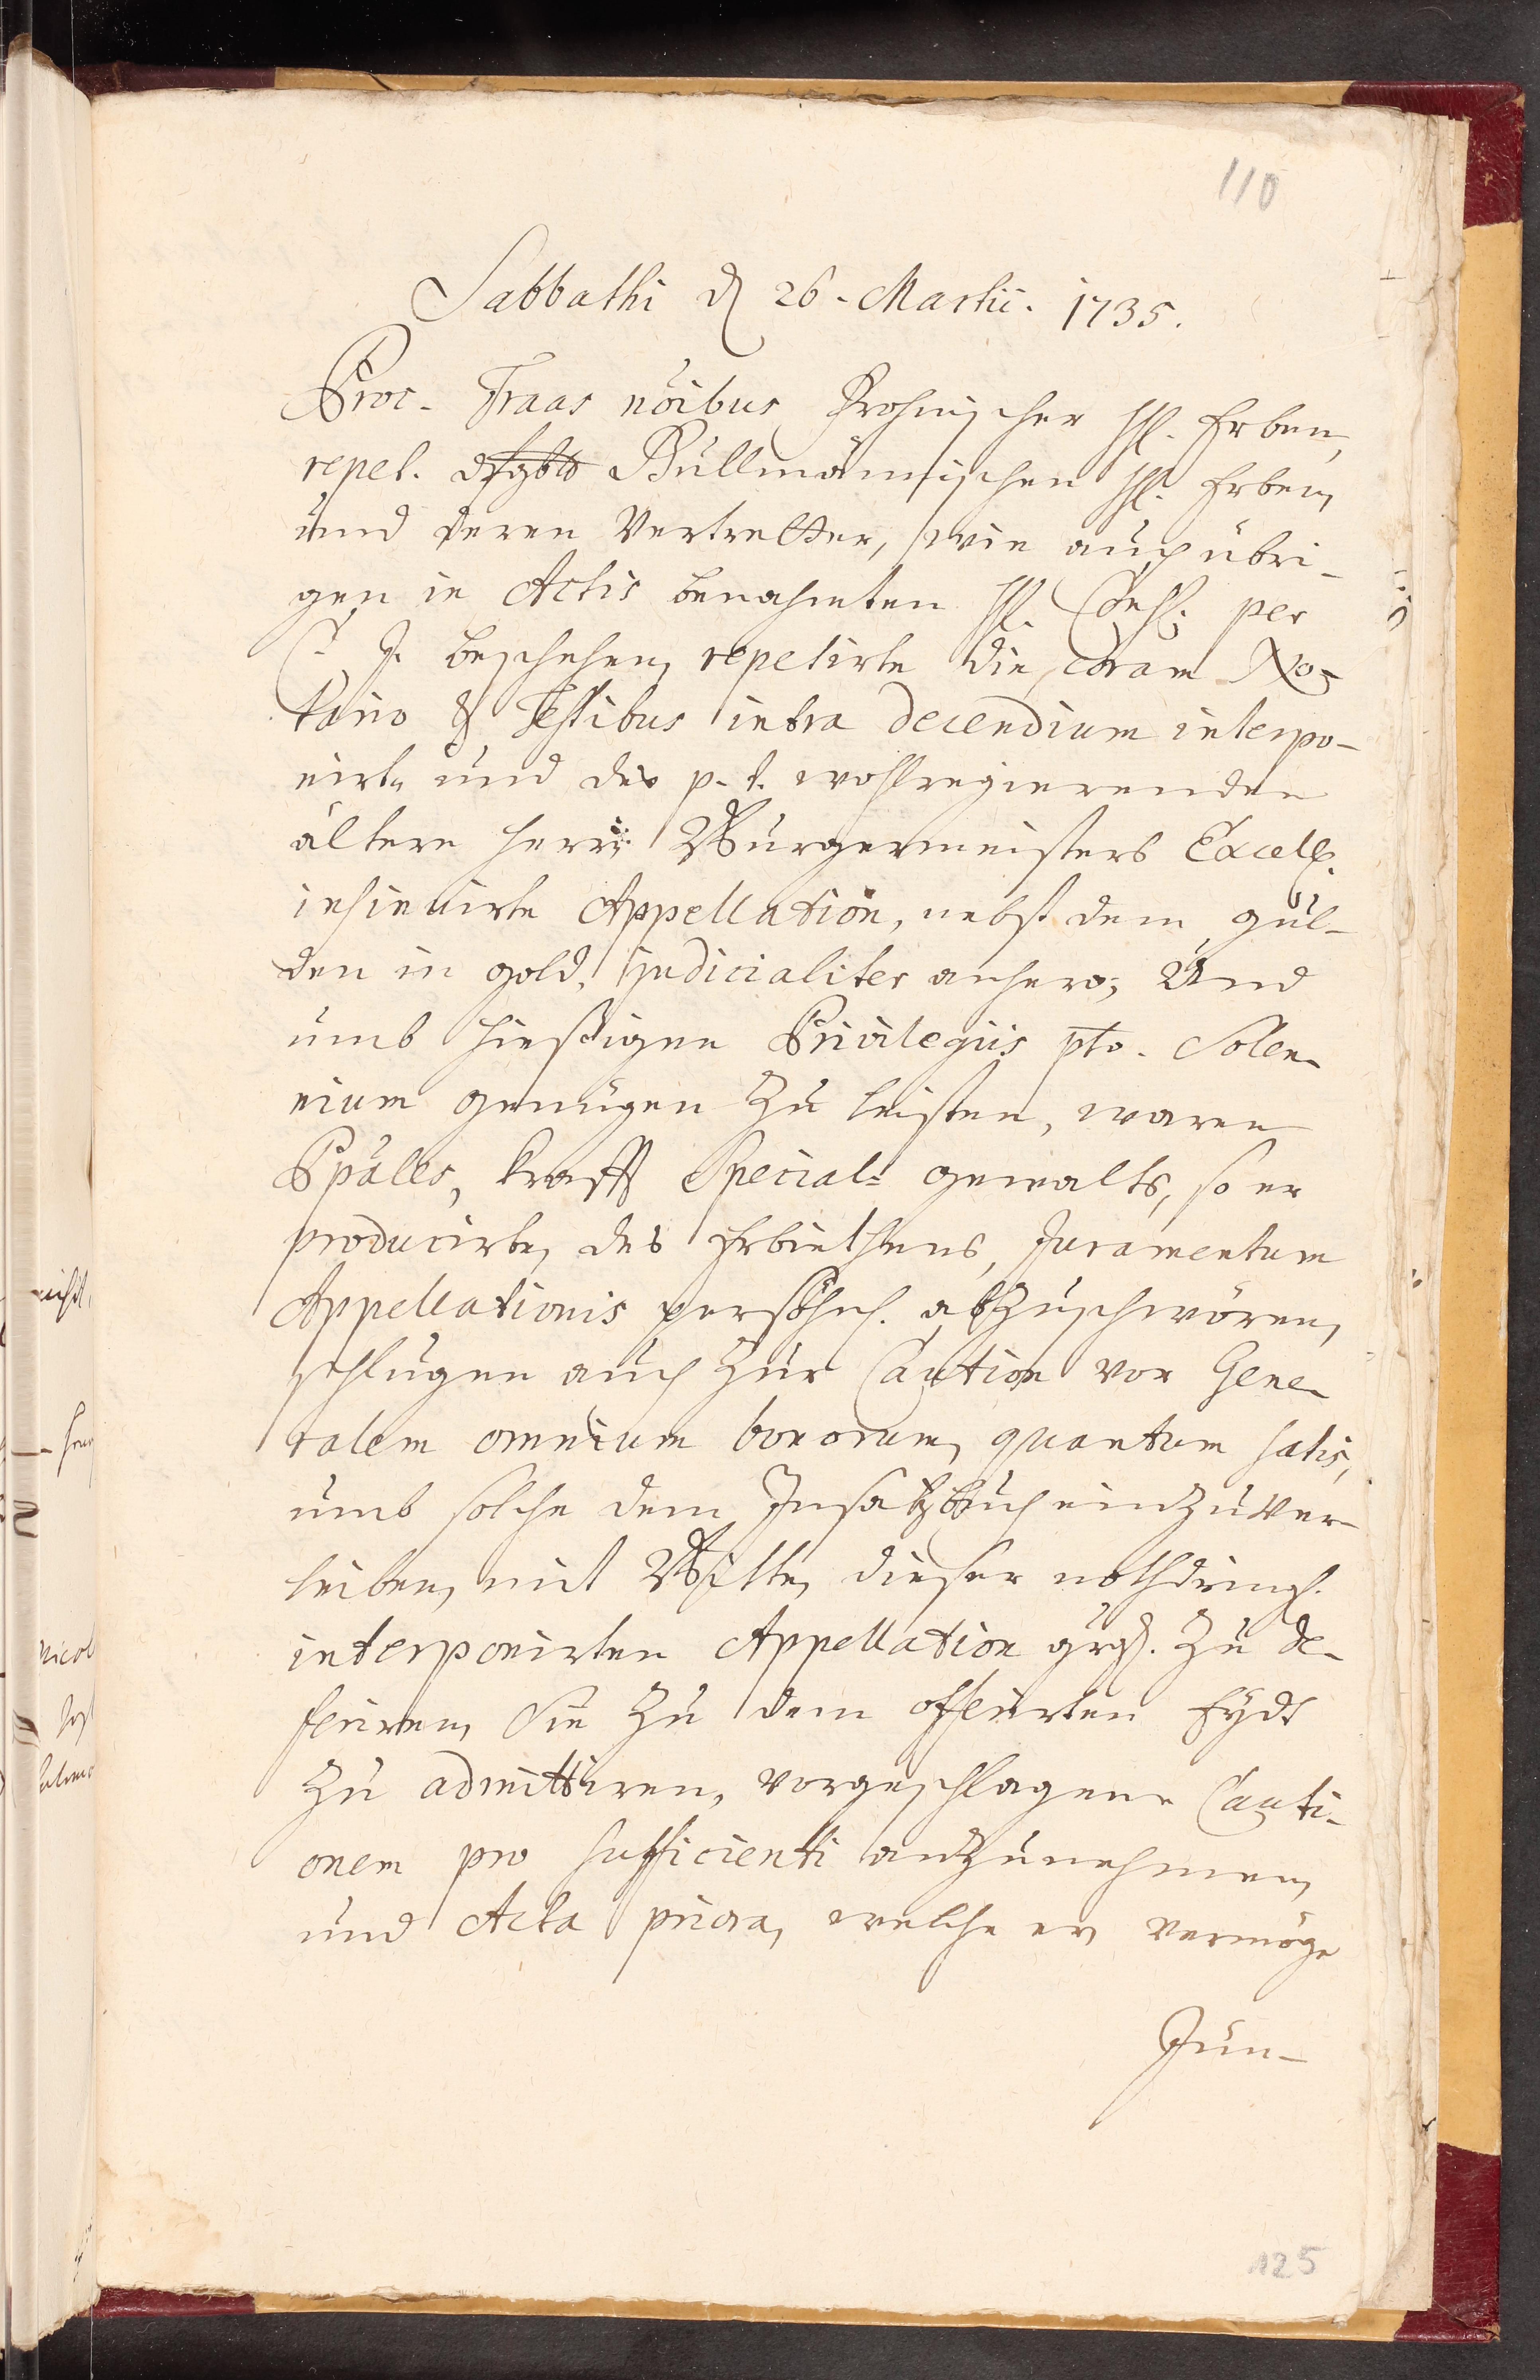 110
Sabbathi d 26. Martii. 1735.
Proc. Fraas nōibus Frohnischer HH. Erben,
repet. Bullmännischen HH. Erben,
und deren Vertretter, wie auch übri-
gen in Actis benahmten HH. Cons: per
C. J. beschehen, repetirte die, coram No-
tario & Testibus intra decendium interpo-
nirt, und des p. t. wohlregierenden
ältern Herrn Burgermeisters Excell.
insinuirte Appellation, nebst dem gül-
den in gold, judicialiter anhero; Und
umb hießigen Privilegiis pto. Solen-
nium genügen zu leisten, waren
Ppāles, krafft Special- gewalts, so er
producirte, des Erbiethens, Juramentum
Appellationis persöhnl. abzuschwören,
schlugen auch zur Caution vor Gene-
ralem omnium bonorum, quantum satis,
umb solche dem Insatzbuch einzuver-
leiben, mit Bitte, dieser nothdringl.
interponirten Appellation grgl. zu de-
feriren, Sie zu dem offerirten Eydt
zu admittiren, vorgeschlagene Cauti-
onem pro sufficienti anzunehmen,
und Acta priora, welche er, vermöge
Jun-
125